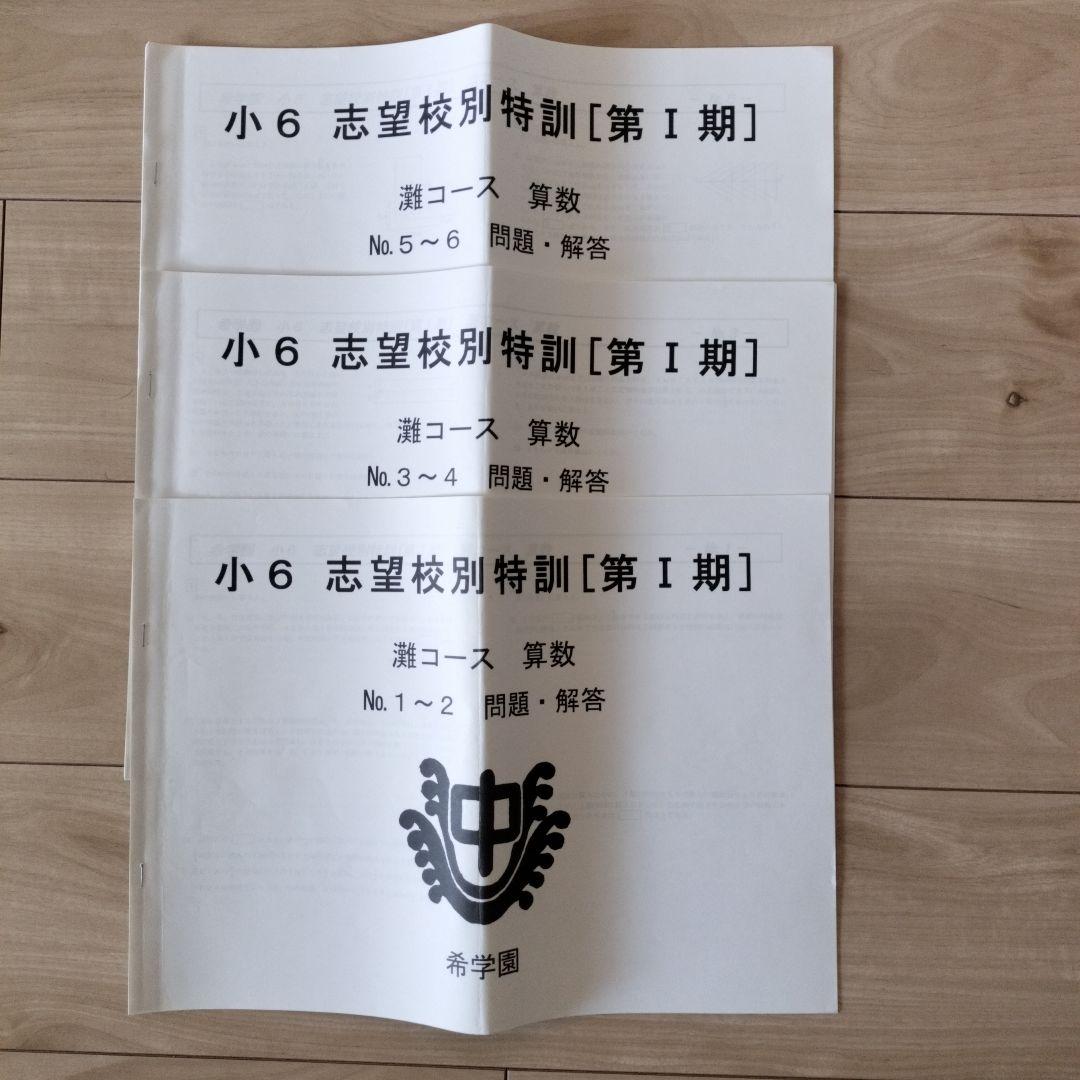 小6 志望校別特訓[第Ⅰ期]
灘コース 算数
№5～6 問題・解答
小6 志望校別特訓[第Ⅰ期]
灘コース 算数
№3～4 問題・解答
小6 志望校別特訓[第Ⅰ期]
灘コース 算数
№1～2 問題・解答
中
希学園